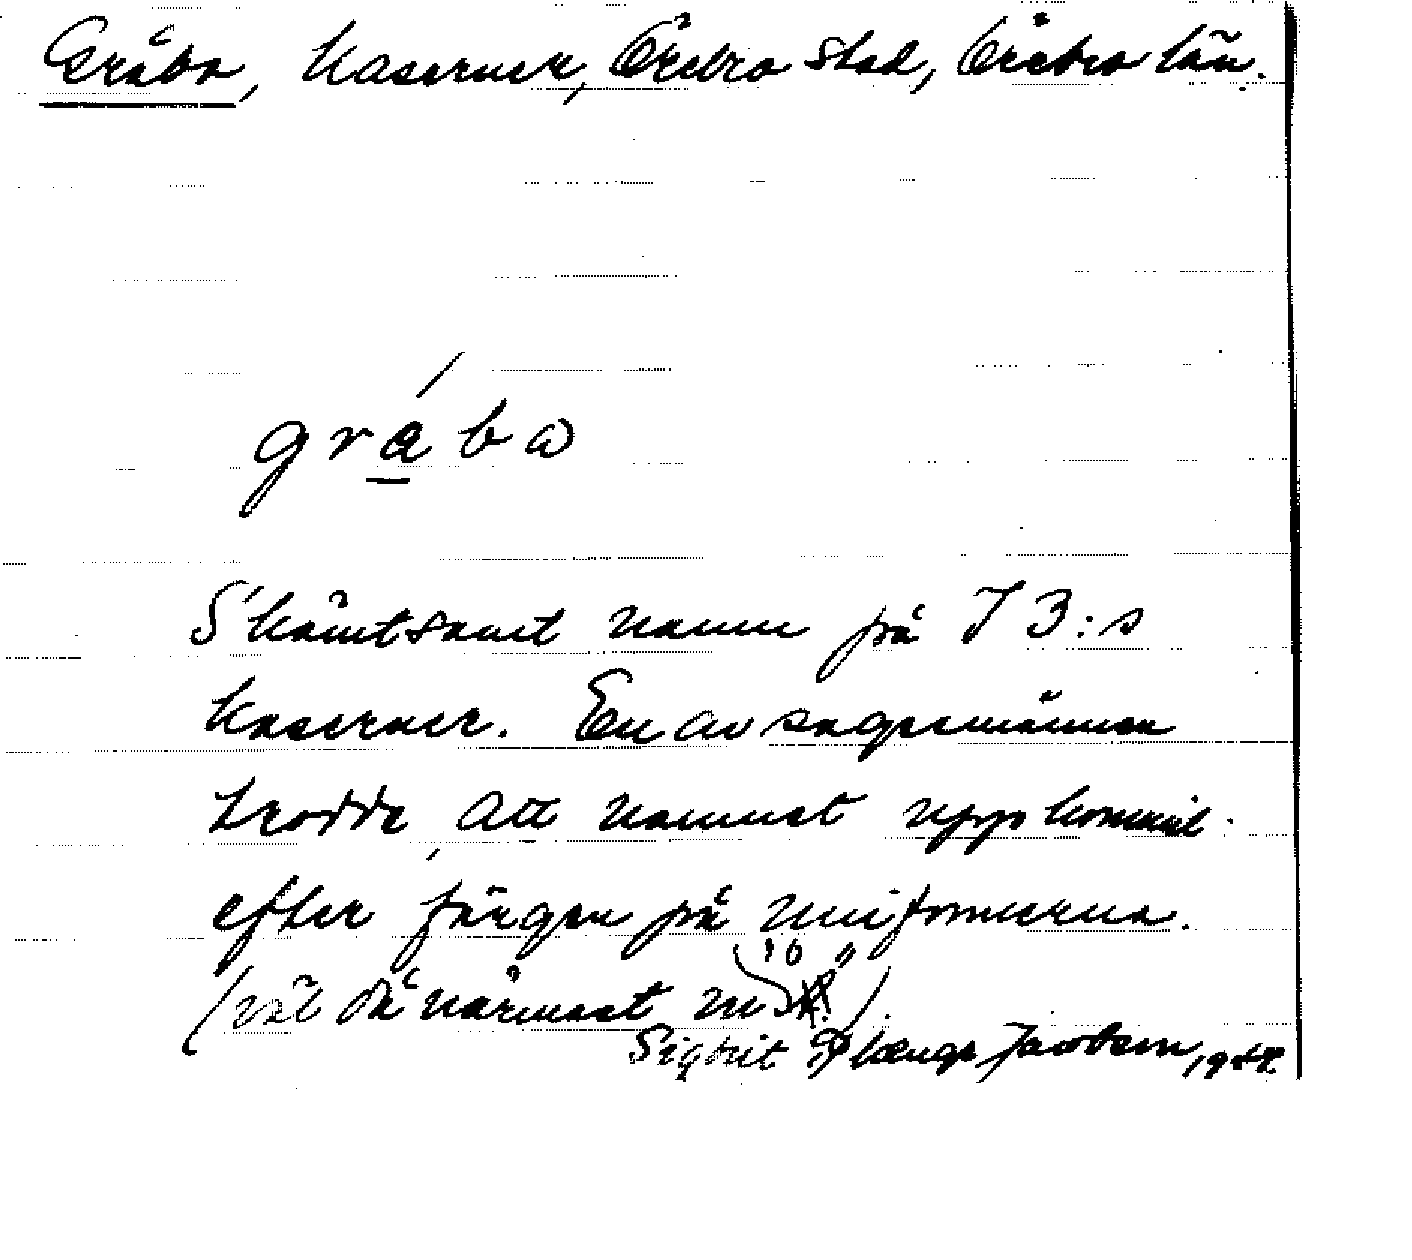 Gråbo, kaserner, Örebro stad, Örebro län.
gråbo
Skämtsamt namn på I 3:s
kaserner. En av sagesmännen
trodde, att namnet uppkommit
efter färgen på uniformerna.
(väl då närmast m
Sigbrit Plænge Jacobson, 1954.